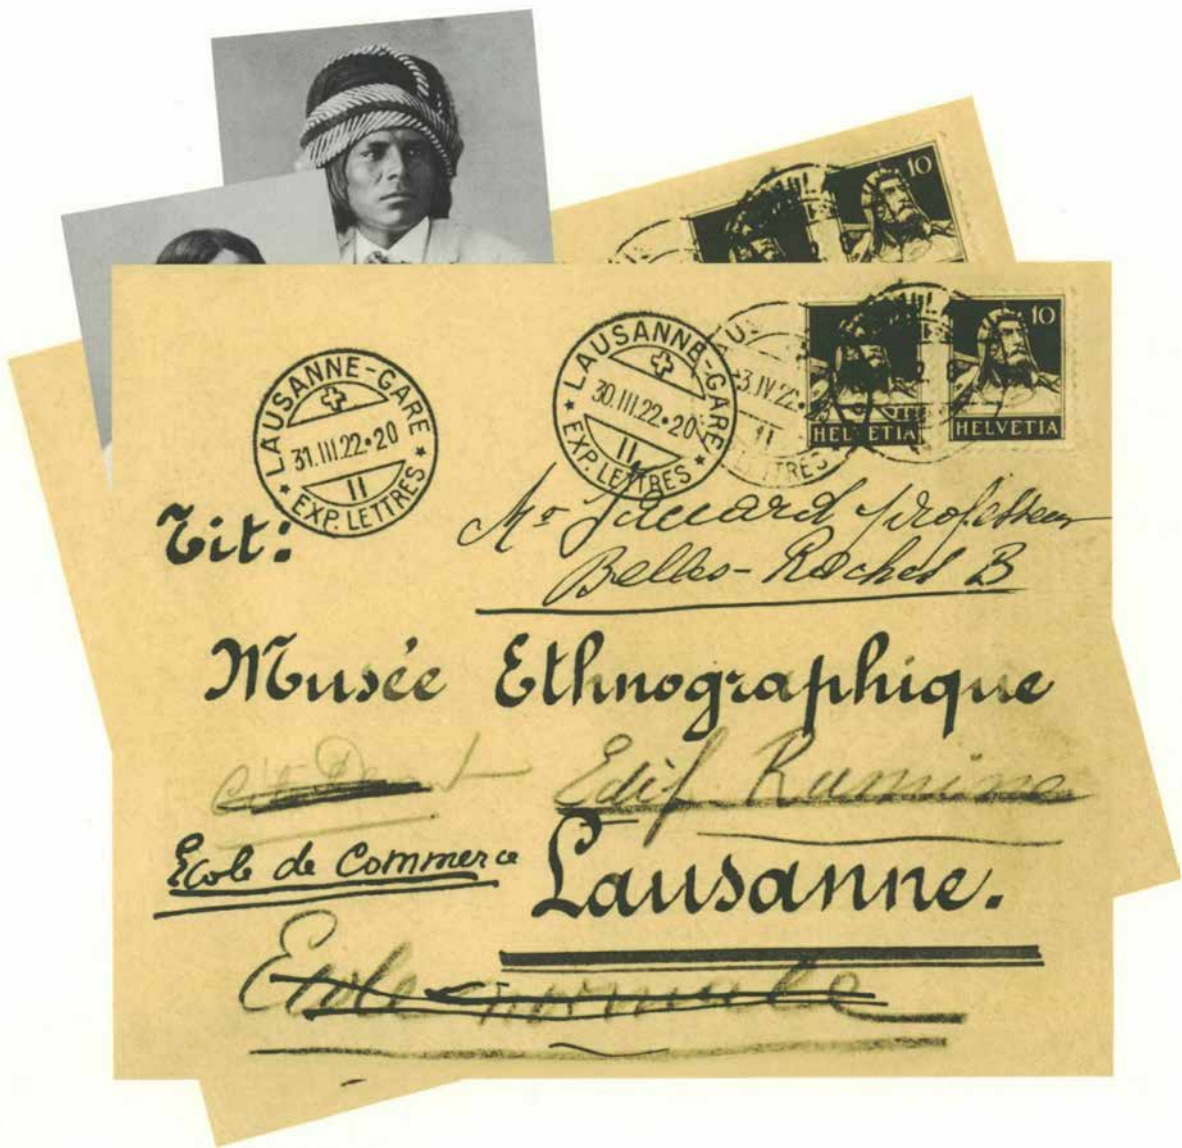 10
LAUSANNE-GARE
31.III.22•20
II
★ EXP. LETTRES ★
LAUSANNE-GARE
30.III.22•20
II
★ EXP. LETTRES ★
3.IV.22
11
LETTRES
10
HELVETIA
HELVETIA
Tit:
Mr Jaccard professeur
Belles-Roches B
Musée Ethnographique
Edif. Rumine
Ecole de Commerce
Lausanne.
Ecole normale